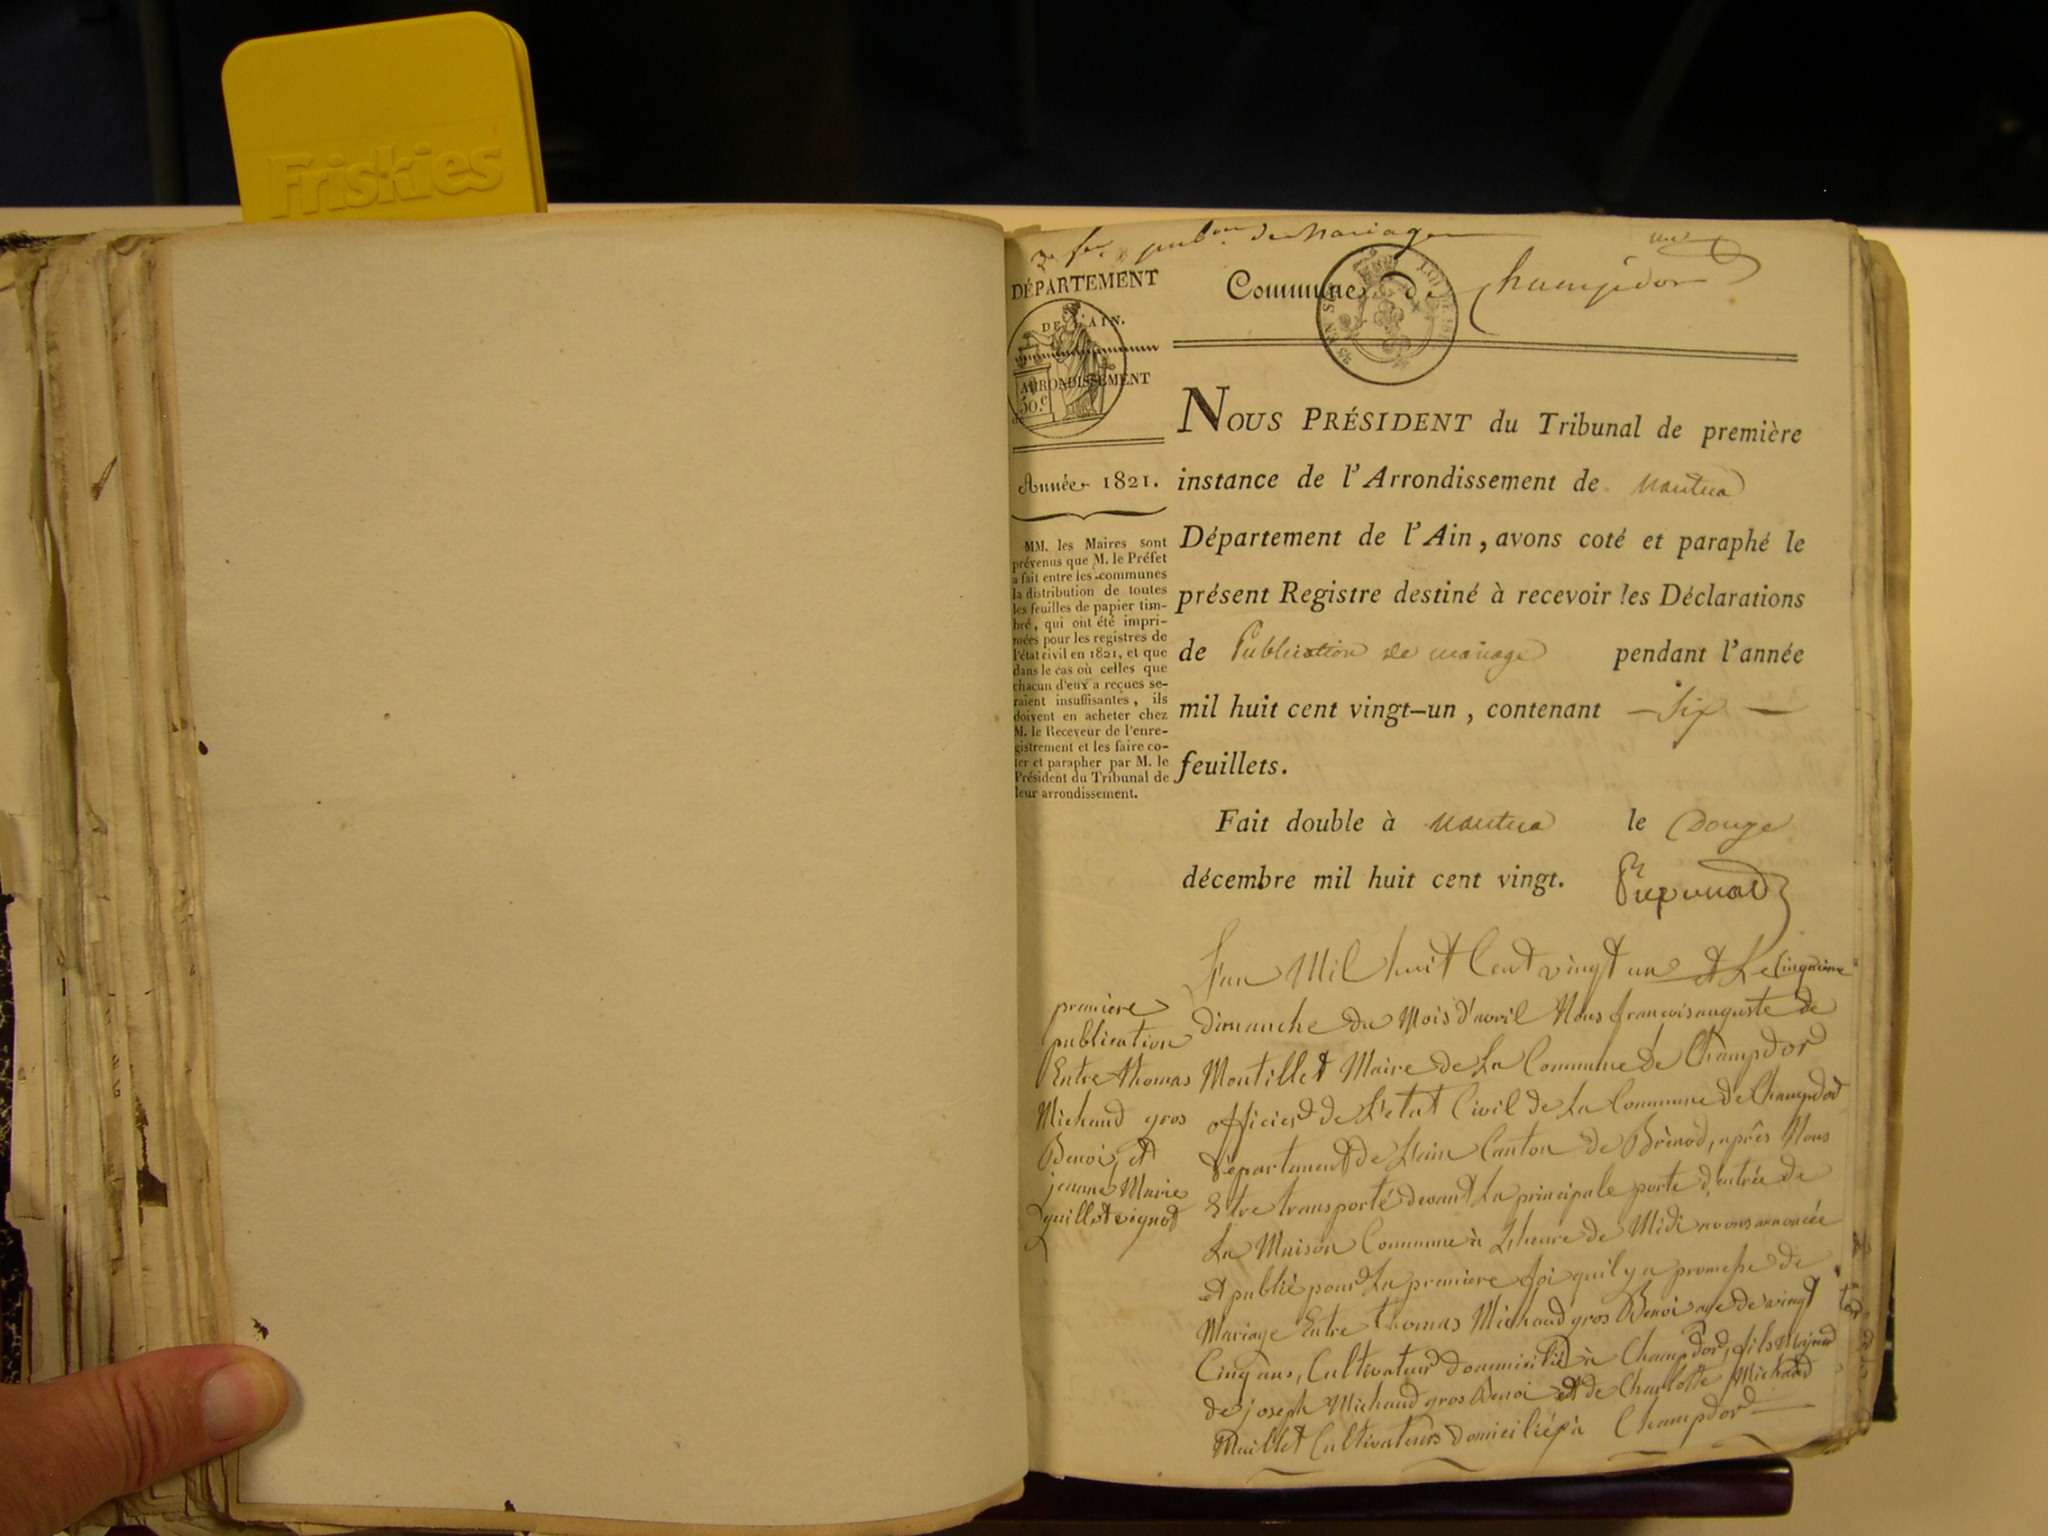 Friskies
DÉPARTEMENT
DE L'AIN.
ARRONDISSEMENT
50.c
Commune de Champdor
Année 1821.
MM. les Maires sont
prévenus que M. le Préfet
a fait entre les communes
la distribution de toutes
les feuilles de papier tim-
bré, qui ont été impri-
mées pour les registres de
l'état civil en 1821, et que
dans le cas où celles que
chacun d'eux a reçues se-
raient insuffisantes, ils
doivent en acheter chez
M. le Receveur de l'enre-
gistrement et les faire co-
ter et parapher par M. le
Président du Tribunal de
leur arrondissement.
NOUS PRÉSIDENT du Tribunal de première
instance de l'Arrondissement de Nantua
Département de l'Ain, avons coté et paraphé le
présent Registre destiné à recevoir les Déclarations
de Publication de mariage pendant l'année
mil huit cent vingt-un, contenant - Six -
feuillets.
Fait double à Nantua le Douze
décembre mil huit cent vingt.
première
publication
Entre thomas
Michaud gros
Benoi, et
jeanne Marie
L'an Mil huit Cent vingt un et Le Cinquième
dimanche du Mois d'avril Nous francois auguste de
Montillet Maire de La Commune de Champdor
officier de L'etat Civil de La Commune de Champdor
département de L'ain Canton de Brénod, après Nous
Etre transporté devant La principale porte d'entrée de
La Maison Commune à L'heure de Midi avons annoncée
et publié pour La premiere foi quil y a promesse de
Mariage Entre thomas Michaud gros Benoi age de vingt
Cinq ans, Cultivateur domicilié à Champdor, fils Majeur
de joseph Michaud gros Benoi et de Charlotte Michaud
Maillet Cultivateurs domiciliés à Champdor